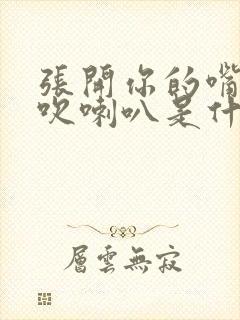 張開你的嘴
吹喇叭是什
層雲無寂